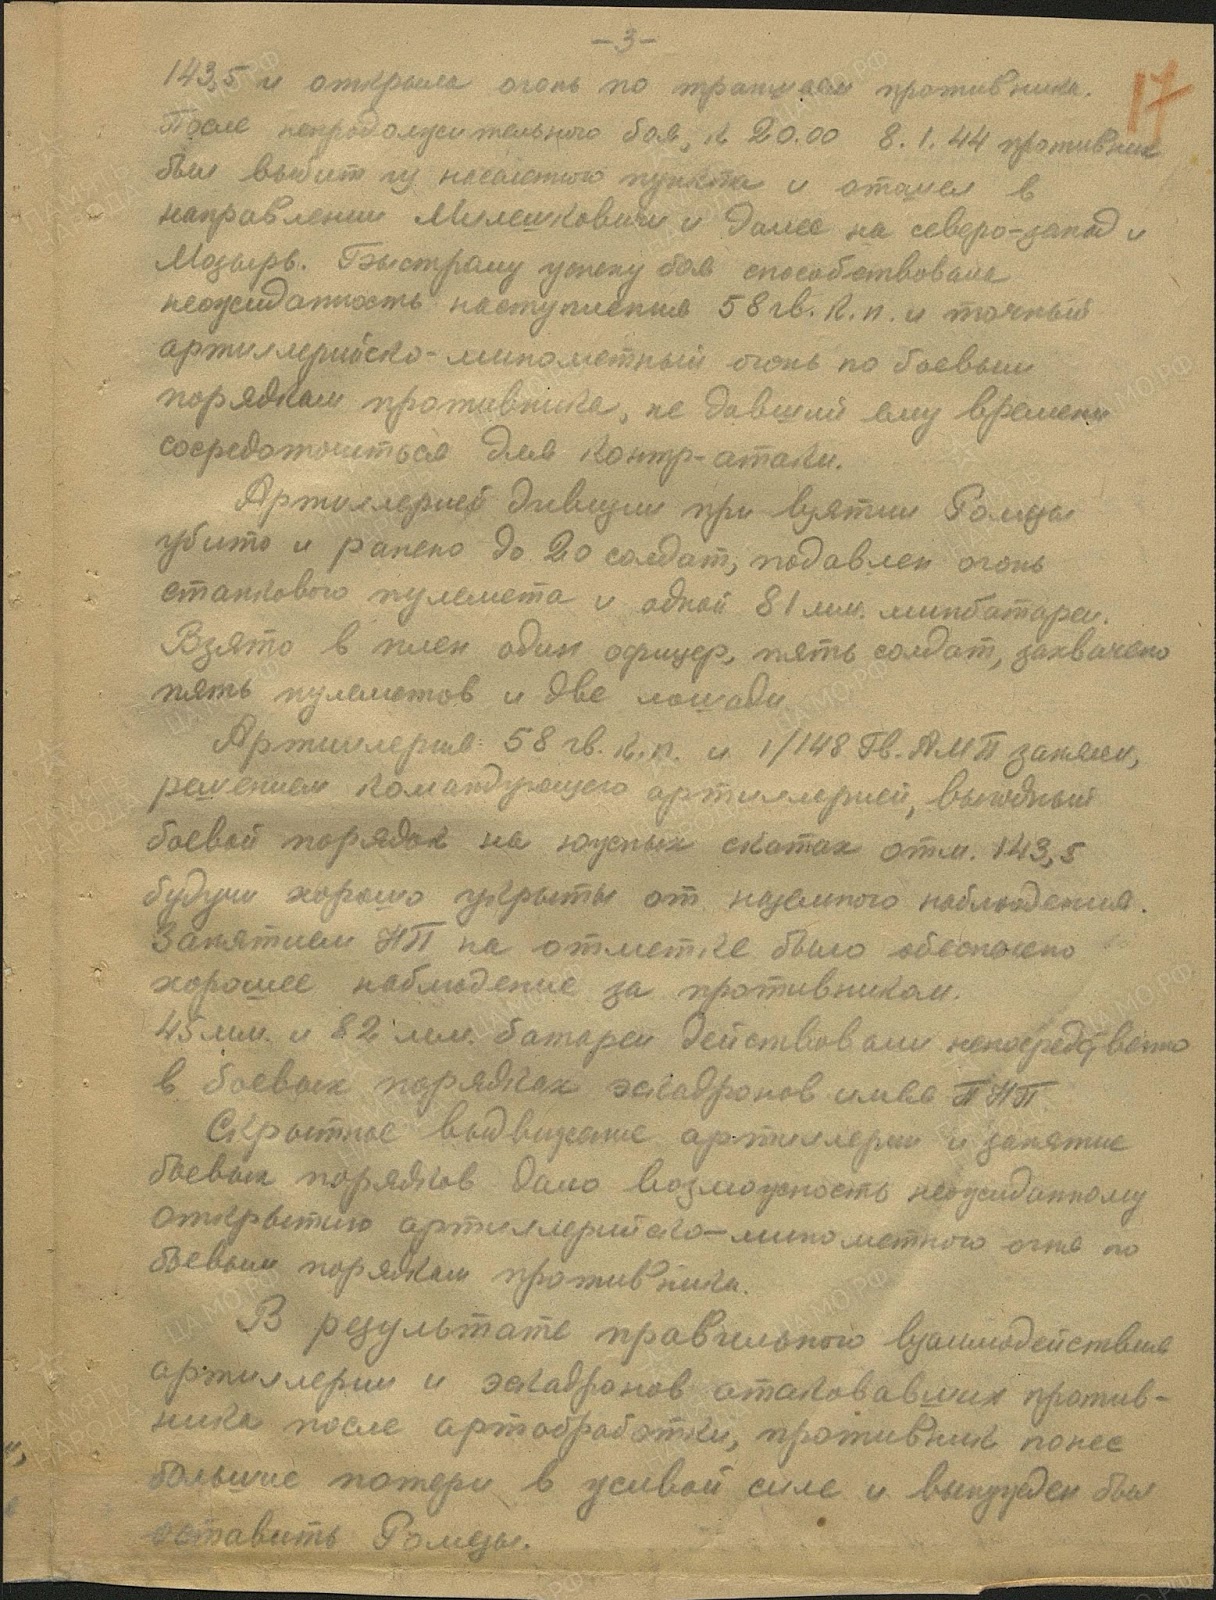 -3-
17
143,5 и открыла огонь по траншеям противника.
После непродолжительного боя, к 20.00 8.1.44 противник
был выбит из населеного пункта и отошел в
направлении Милешковичи и далее на северо-запад и
Мозырь. Быстрому успеху боя способствовала
неожиданность наступления 58 гв. к. п. и точный
артиллерийско-минометный огонь по боевым
порядкам противника, не давший ему времени
сосредоточиться для контр-атаки.
Артиллерией дивизии при взятии Ромезы
убито и ранено до 20 солдат, подавлен огонь
станкового пулемета и одной 81 мм. минбатареи.
Взято в плен один офицер, пять солдат, захвачено
пять пулеметов и две лошади
Артиллерия 58 гв. к. п. и 1/148 Гв. АМП заняли,
решением командующего артиллерией, выгодный
боевой порядок на южных скатах отм. 143,5
будучи хорошо укрыты от наземного наблюдения.
Занятием НП на отметке было обеспечено
хорошее наблюдение за противником.
45 мм. и 82 мм. батареи действовали непосредственно
в боевых порядках эскадронов имея ПНП
Скрытное выдвижение артиллерии и занятие
боевых порядков дало возможность неожиданному
открытию артиллерийско-минометного огня по
боевым порядкам противника.
В результате правильного взаимодействия
артиллерии и эскадронов атаковавших против-
ника после артобработки, противник понес
большие потери в живой силе и вынужден был
оставить Ромезы.
ЦАМО.РФ
ПАМЯТЬ
НАРОДА